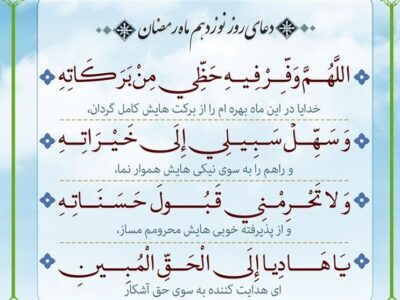 دعای روز نوزدهم ماه رمضان
اللَّهُمَّ وَفِّرْ فِيهِ حَظِّي مِنْ بَرَكَاتِهِ
خدایا در این ماه بهره ام را از برکت هایش کامل گردان،
وَ سَهِّلْ سَبِيلِي إِلَى خَيْرَاتِهِ
و راهم را به سوی نیکی هایش هموار نما،
وَ لا تَحْرِمْنِي قَبُولَ حَسَنَاتِهِ
و از پذیرفته خوبی هایش محرومم مساز،
يَا هَادِيا إِلَى الْحَقِّ الْمُبِينِ
ای هدایت کننده به سوی حق آشکار